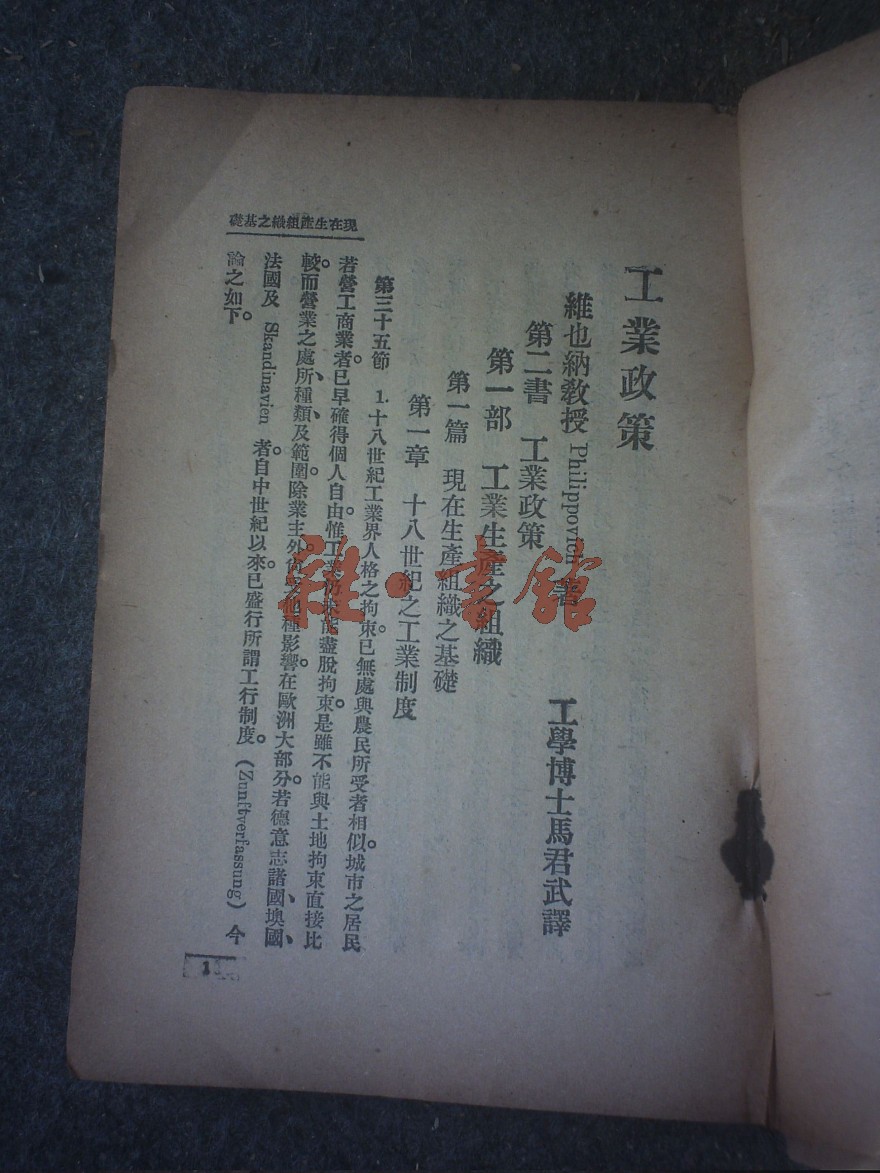 工業政策
維也納教授 Philippovich 著 工學博士馬君武譯
第二書 工業政策
第一部 工業生產之組織
第一篇 現在生產組織之基礎
第一章 十八世紀之工業制度
第三十五節 1.十八世紀工業界人格之拘束。已無處與農民所受者相似。城市之居民
若營工商業者。已早確得個人自由。惟工業 能盡脫拘束。是雖不能與土地拘束直接比
較。而營業之處所、種類、及範圍。除業主外。 他種影響。在歐洲大部分。若德意志諸國、墺國、
法國及 Skandinavien 者。自中世紀以來。已盛行所謂工行制度。(Zunftverfassung) 今
論之如下。
現在生產組織之基礎
1
雜·書館